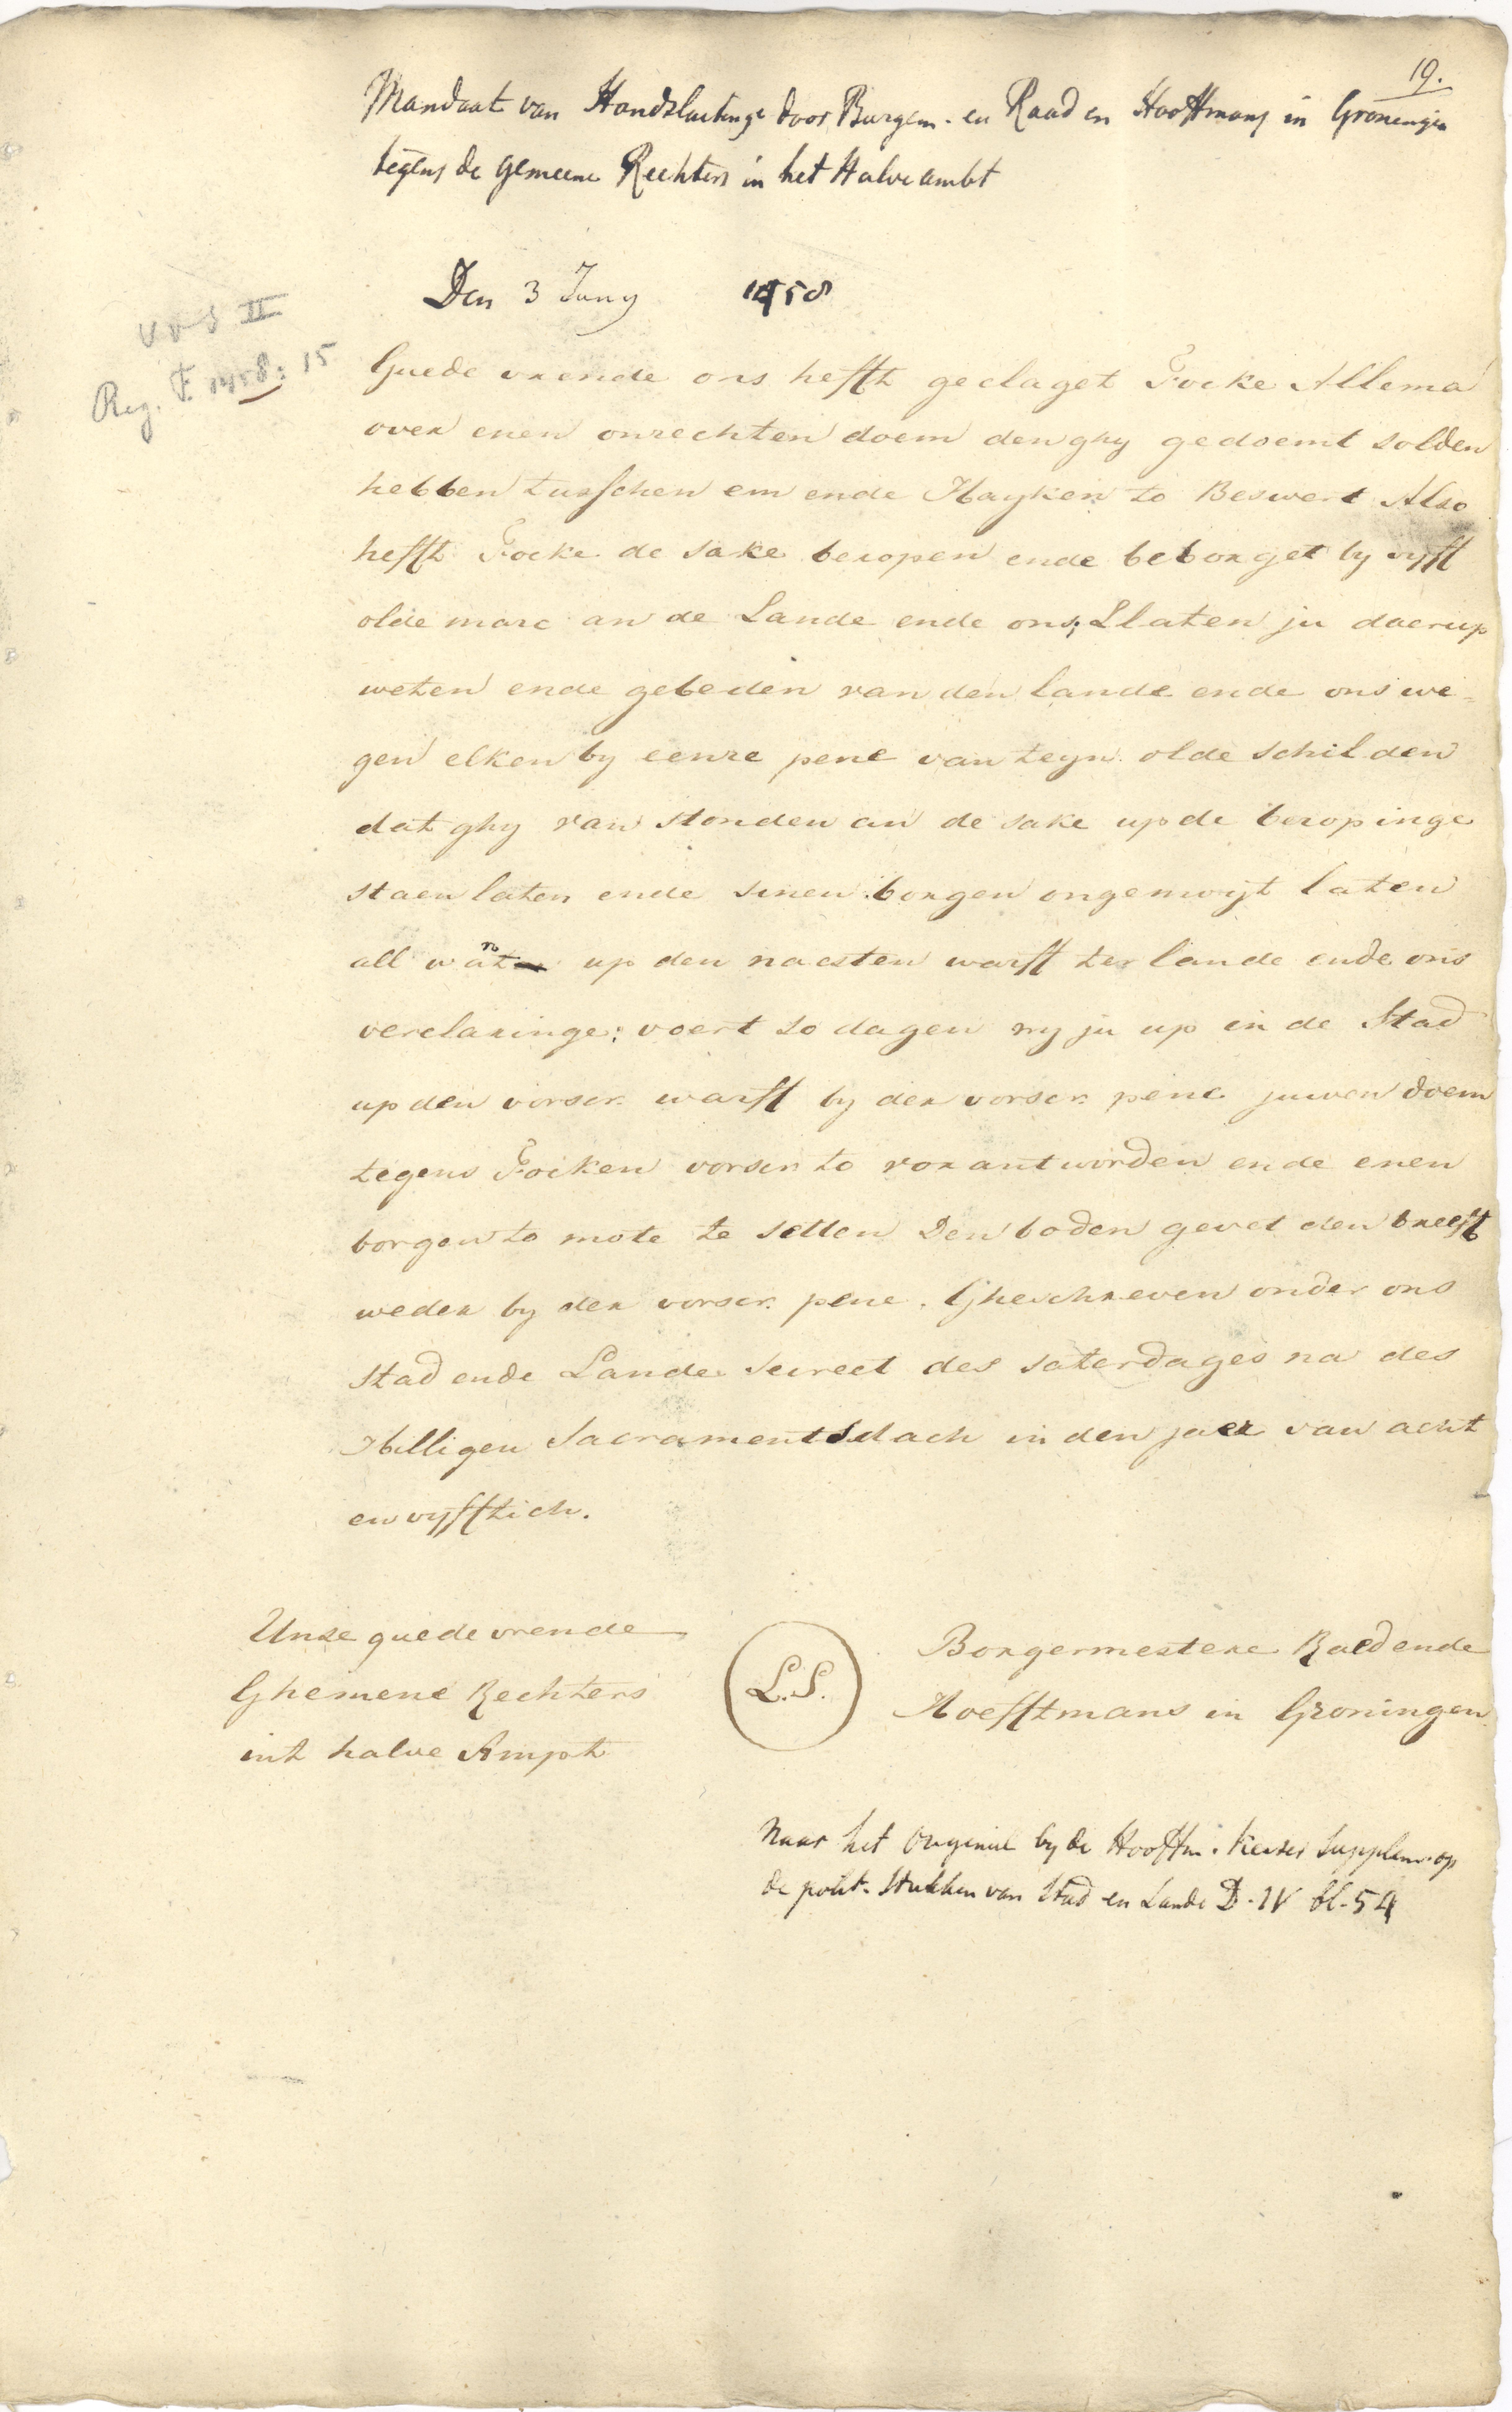 19.
Mandaat van Handsluitinge door Burgem. en Raad en Hooftmans in Groningen
tegens de gemeene Rechters in het Halve ambt
Den 3 Juny 1458
VVS II
Reg. F. 1458: 15
Guede vrende ons hefft geclaget Focke Allema
over enen onrechten doem den ghy gedoemt solden
hebben tusschen em ende Hayken to Beswert Also
hefft Focke de sake beropen ende beborget by vyfft
olde marc an de Lande ende ons, Llaten ju daerup
weten ende gebeden van den lande ende ons we=
gen elken by eenre pene van teyn olde schilden
dat ghy van stonden an de sake up de beropinge
staen laten ende sinen borgen ongemoyt laten
all want up den naesten warff ter lande ende ons
verclaringe: voert so dagen wy ju up in de Stad
up den vorscr. warff by der vorscr. pene juwen doem
tegens Focken vorscr. to vorantworden ende enen
borgen to mote te setten Den boden gevet den breeff
weder by der vorscr. pene. Gheschreven onder ons
Stad ende Lande secreet des saterdages na des
Hilligen Sacramentsdach in den jaer van acht
en vyfftich.
Unse guede vrende
Ghemene Rechters
int halve Ampt
L.S.
Borgermestere Raed ende
Hoefftmans in Groningen
Naar het origineel by de Hooftm. Keiser Supplem. op
de polit. Stukken van Stad en Lande D. IV bl. 54